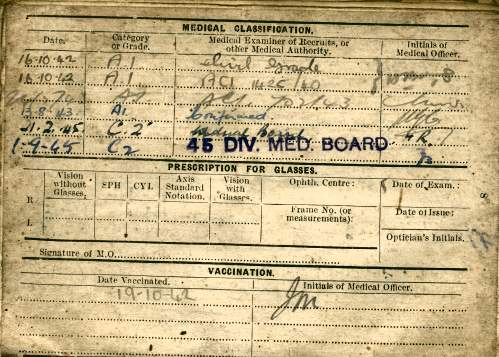 MEDICAL CLASSIFICATION.
Date. Category or Grade. Medical Examiner of Recruits, or other Medical Authority. Initials of Medical Officer.
16.10.42 A.1 Civil Grade
16.10.42 A.1
8.43 A1 Confirmed
11.2.45 C.2 Medical Board
1-9-45 C2 45 DIV. MED. BOARD
PRESCRIPTION FOR GLASSES.
Vision without Glasses. SPH CYL Axis Standard Notation. Vision with Glasses. Ophth. Centre: Date of Exam.:
R
Frame No. (or measurements): Date of Issue:
L
Optician's Initials.
Signature of M.O.
VACCINATION.
Date Vaccinated. Initials of Medical Officer.
19-10-42 JM